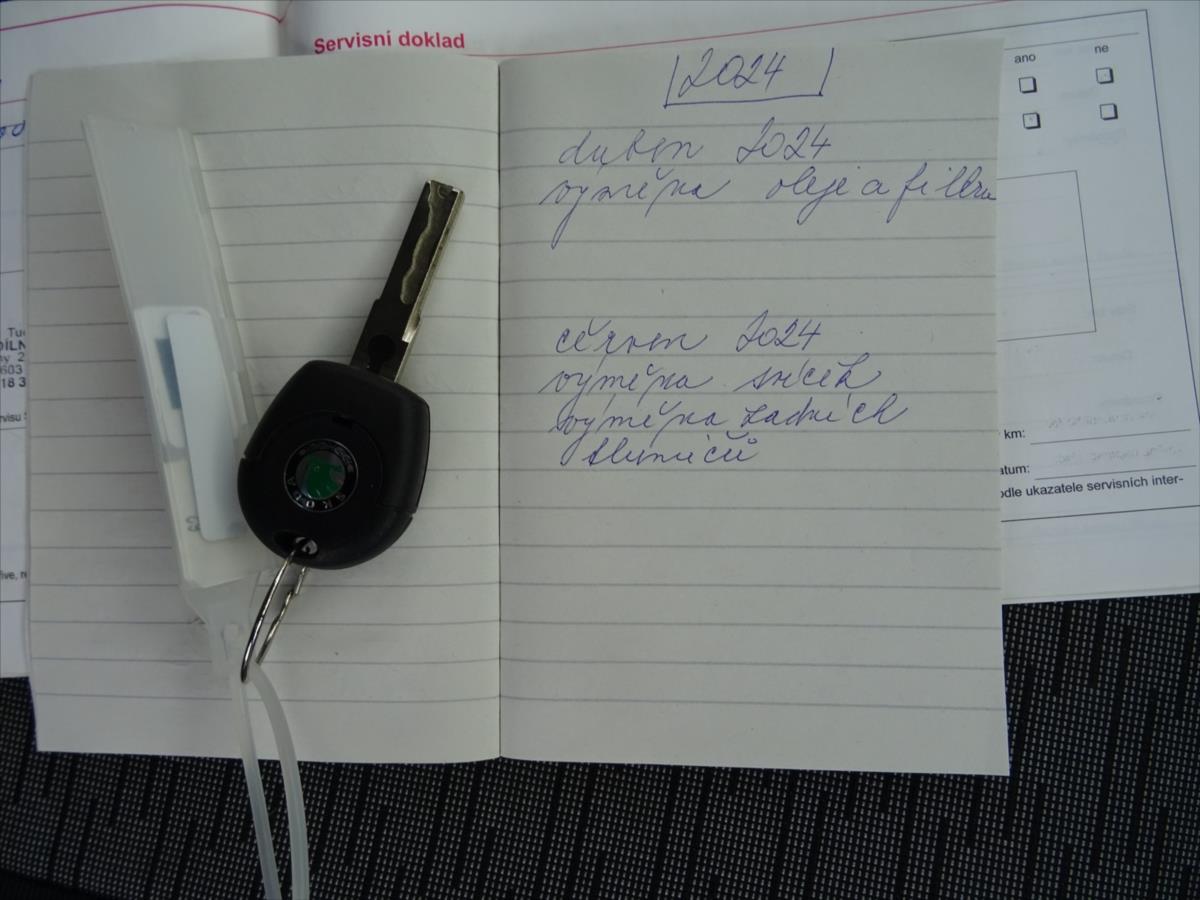 Servisní doklad
ano
ne
2024
duben 2024
výměna oleje a filtru
červen 2024
výměna svíček
výměna zadních
tlumičů
ŠKODA
km:
atum:
odle ukazatele servisních inter-